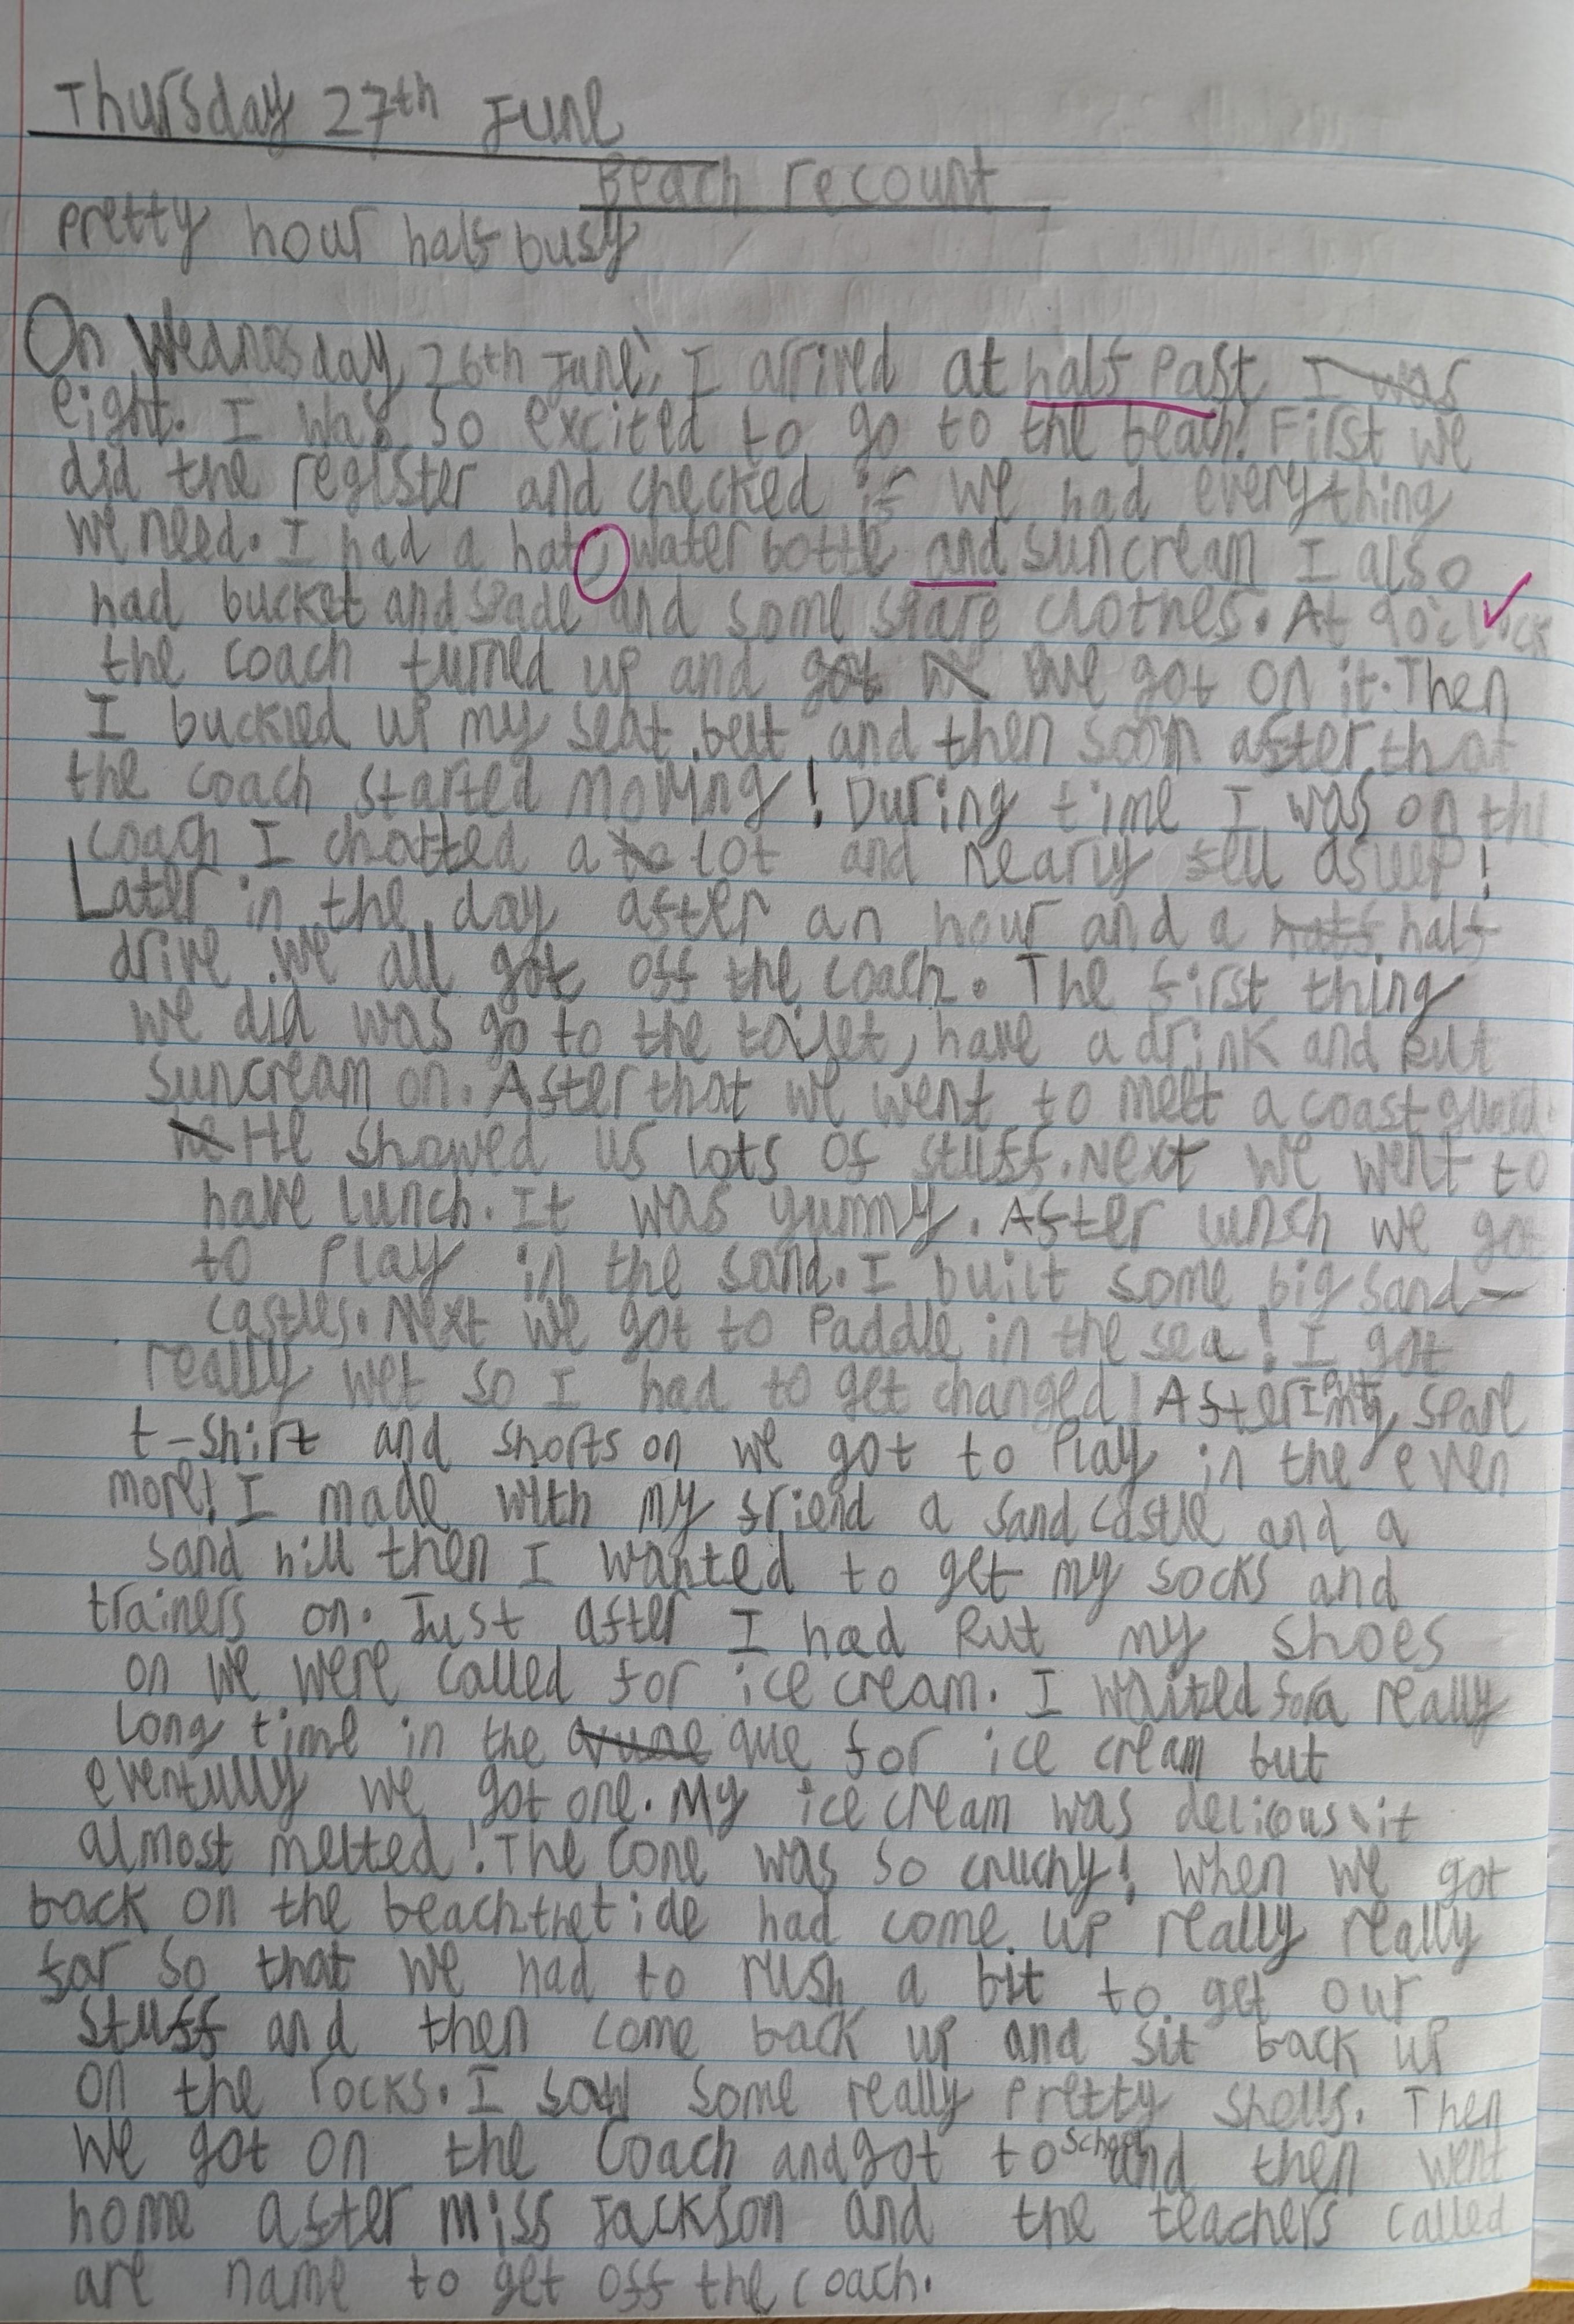 Thursday 27th June
Beach recount
pretty hour half busy
On Wednosday 26th June, I arrived at half past I was
eight. I was so excited to go to the beach! First we
did the register and checked if we had everything
we need. I had a hat, water bottle and suncream I also
had bucket and spade and some spare clothes. At 9o'clock
the coach turned up and got we we got on it. Then
I buckled up my seat belt and then soon after that
the coach started moving! During time I was on the
coach I chatted a to lot and nearly fell asleep!
Later in the day after an hour and a half half
drive we all got off the coach. The first thing
we did was go to the toilet, have a drink and put
suncream on. After that we went to meet a coastguard.
he He showed us lots of stuff. Next we went to
have lunch. It was yummy. After lunch we got
to play in the sand. I built some big sand-
castles. Next we got to paddle in the sea! I got
really wet so I had to get changed! After I put my spare
t-shirt and shorts on we got to play in the even
more! I made with my friend a sand castle and a
sand hill then I wanted to get my socks and
trainers on. Just after I had put my shoes
on we were called for ice cream. I waited for a really
long time in the que for ice cream but
eventully we got one. My ice cream was delicous it
almost melted! The cone was so cruchy! When we got
back on the beach the tide had come up really really
far so that we had to rush a bit to get our
stuff and then come back up and sit back up
on the rocks. I saw some really pretty shells. Then
we got on the coach and got to school and then went
home after miss Jackson and the teachers called
are name to get off the coach.